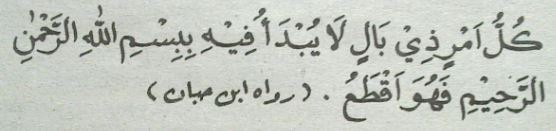 كُلُّ اَمْرٍ ذِيْ بَالٍ لَا يُبْدَأُ فِيْهِ بِبِسْمِ اللهِ الرَّحْمٰنِ
الرَّحِيْمِ فَهُوَ اَقْطَعُ . (رواه ابن حبان)